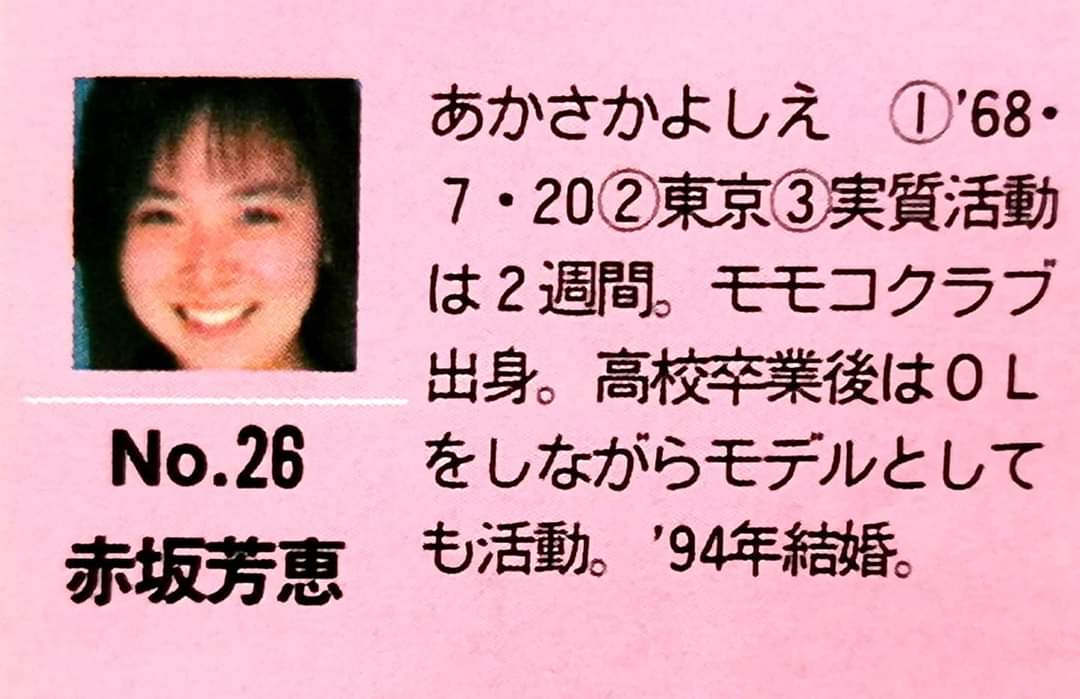 No.26
赤坂芳恵
あかさかよしえ　①'68・
7・20②東京③実質活動
は2週間。モモコクラブ
出身。高校卒業後はOL
をしながらモデルとして
も活動。'94年結婚。